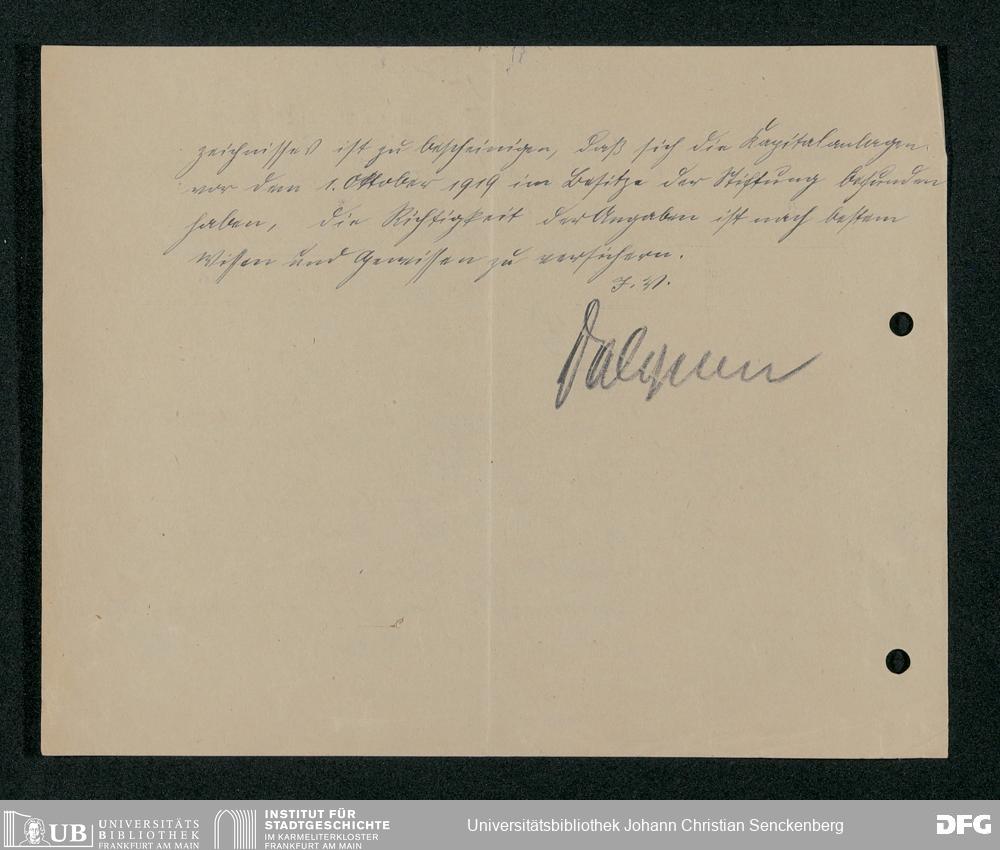 zeichnisses ist zu bescheinigen, daß sich die Kapitalanlagen
vor dem 1. Oktober 1919 im Besitze der Stiftung befunden
haben, die Richtigkeit der Angaben ist nach bestem
Wissen und Gewissen zu versichern.
I. V.
UB UNIVERSITÄTS
BIBLIOTHEK
FRANKFURT AM MAIN
INSTITUT FÜR
STADTGESCHICHTE
IM KARMELITERKLOSTER
FRANKFURT AM MAIN
Universitätsbibliothek Johann Christian Senckenberg
DFG